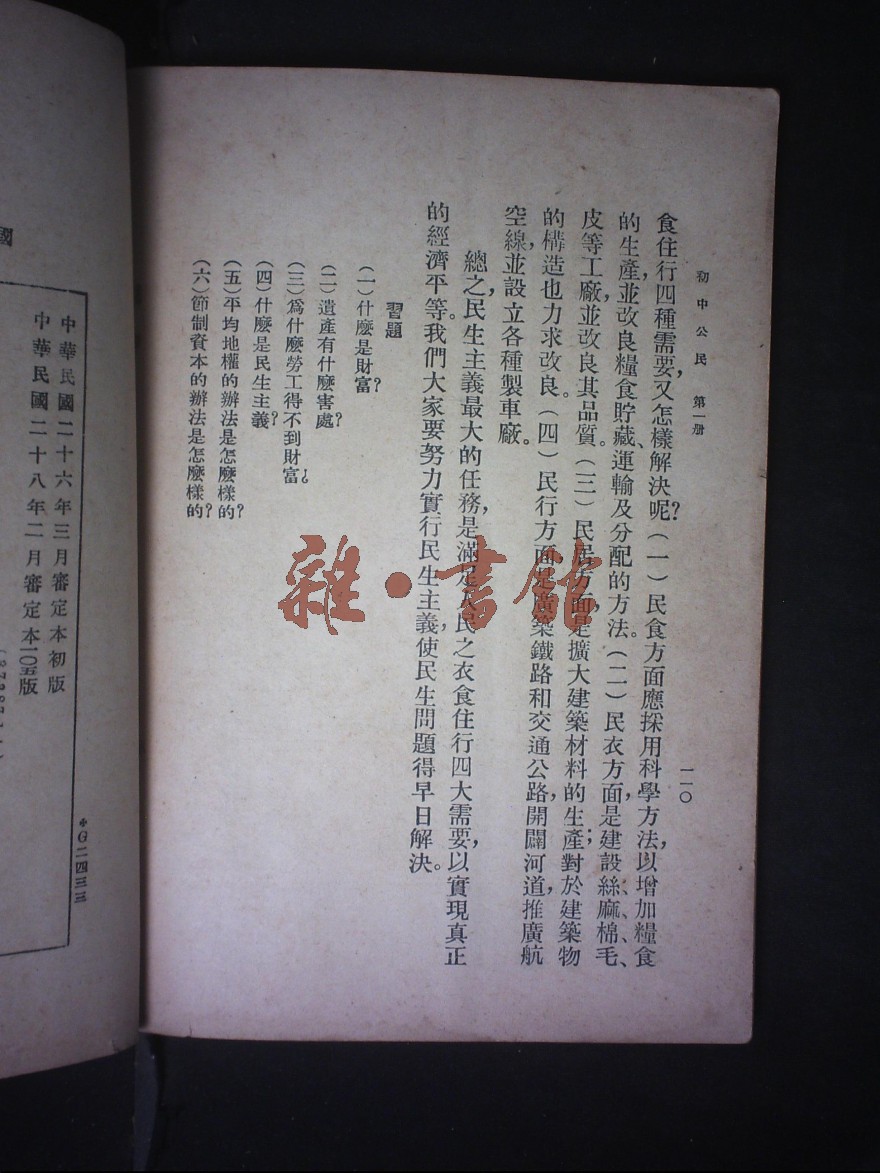 初中公民 第一册
一一〇
食住行四種需要，又怎樣解決呢？（一）民食方面應採用科學方法，以增加糧食
的生產，並改良糧食貯藏、運輸及分配的方法。（二）民衣方面，是建設絲、麻、棉、毛、
皮等工廠，並改良其品質。（三）民居方面，是擴大建築材料的生產；對於建築物
的構造也力求改良。（四）民行方面是廣築鐵路和交通公路，開闢河道，推廣航
空線，並設立各種製車廠。
總之，民生主義最大的任務，是滿足人民之衣食住行四大需要，以實現真正
的經濟平等。我們大家要努力實行民生主義，使民生問題得早日解決。
習題
（一）什麼是財富？
（二）遺產有什麼害處？
（三）爲什麼勞工得不到財富？
（四）什麼是民生主義？
（五）平均地權的辦法是怎麼樣的？
（六）節制資本的辦法是怎麼樣的？
國
中華民國二十六年三月審定本初版
中華民國二十八年二月審定本一〇五版
＊G二四三三
雜·書館